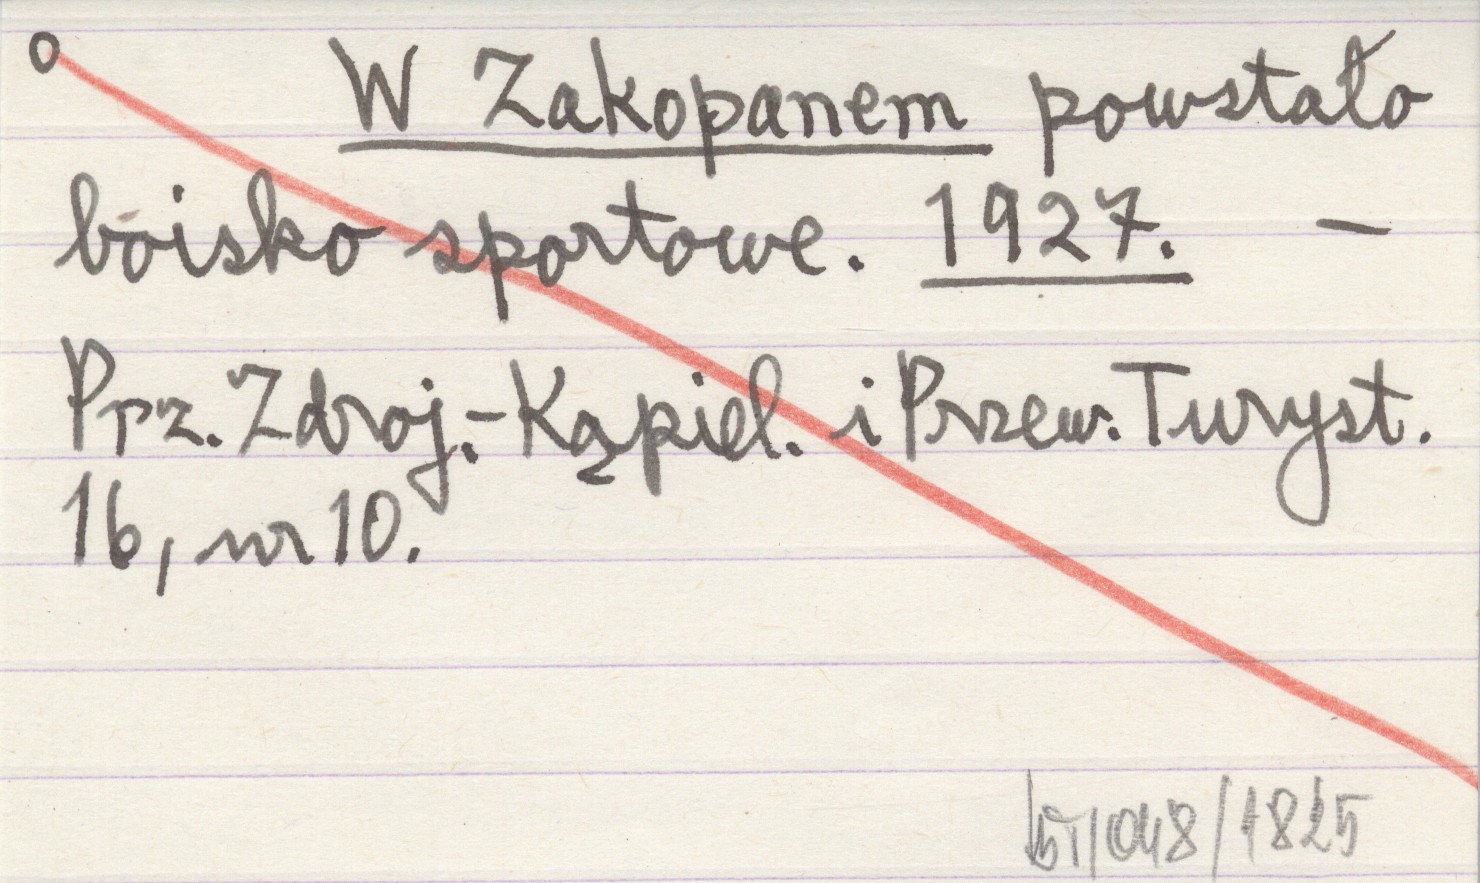 o W Zakopanem powstało
boisko sportowe. 1927. –
Prz. Zdroj.-Kąpiel. i Przew. Turyst.
16, nr 10.
/048/1825